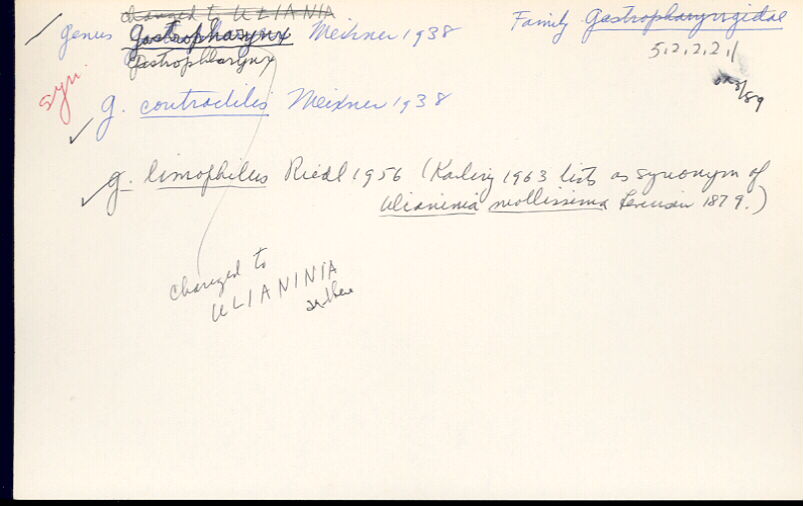 changed to ULIANIA
genus Gastropharynx Meixner 1938
Gastropharynx
Family Gastropharyngidae
5.2.2.2.1
syn.
g. contractilis Meixner 1938
g. limophilus Riedl 1956 (Karling 1963 lists as synonym of
Ulianinia mollissima Levinsen 1879.)
changed to
ULIANINIA